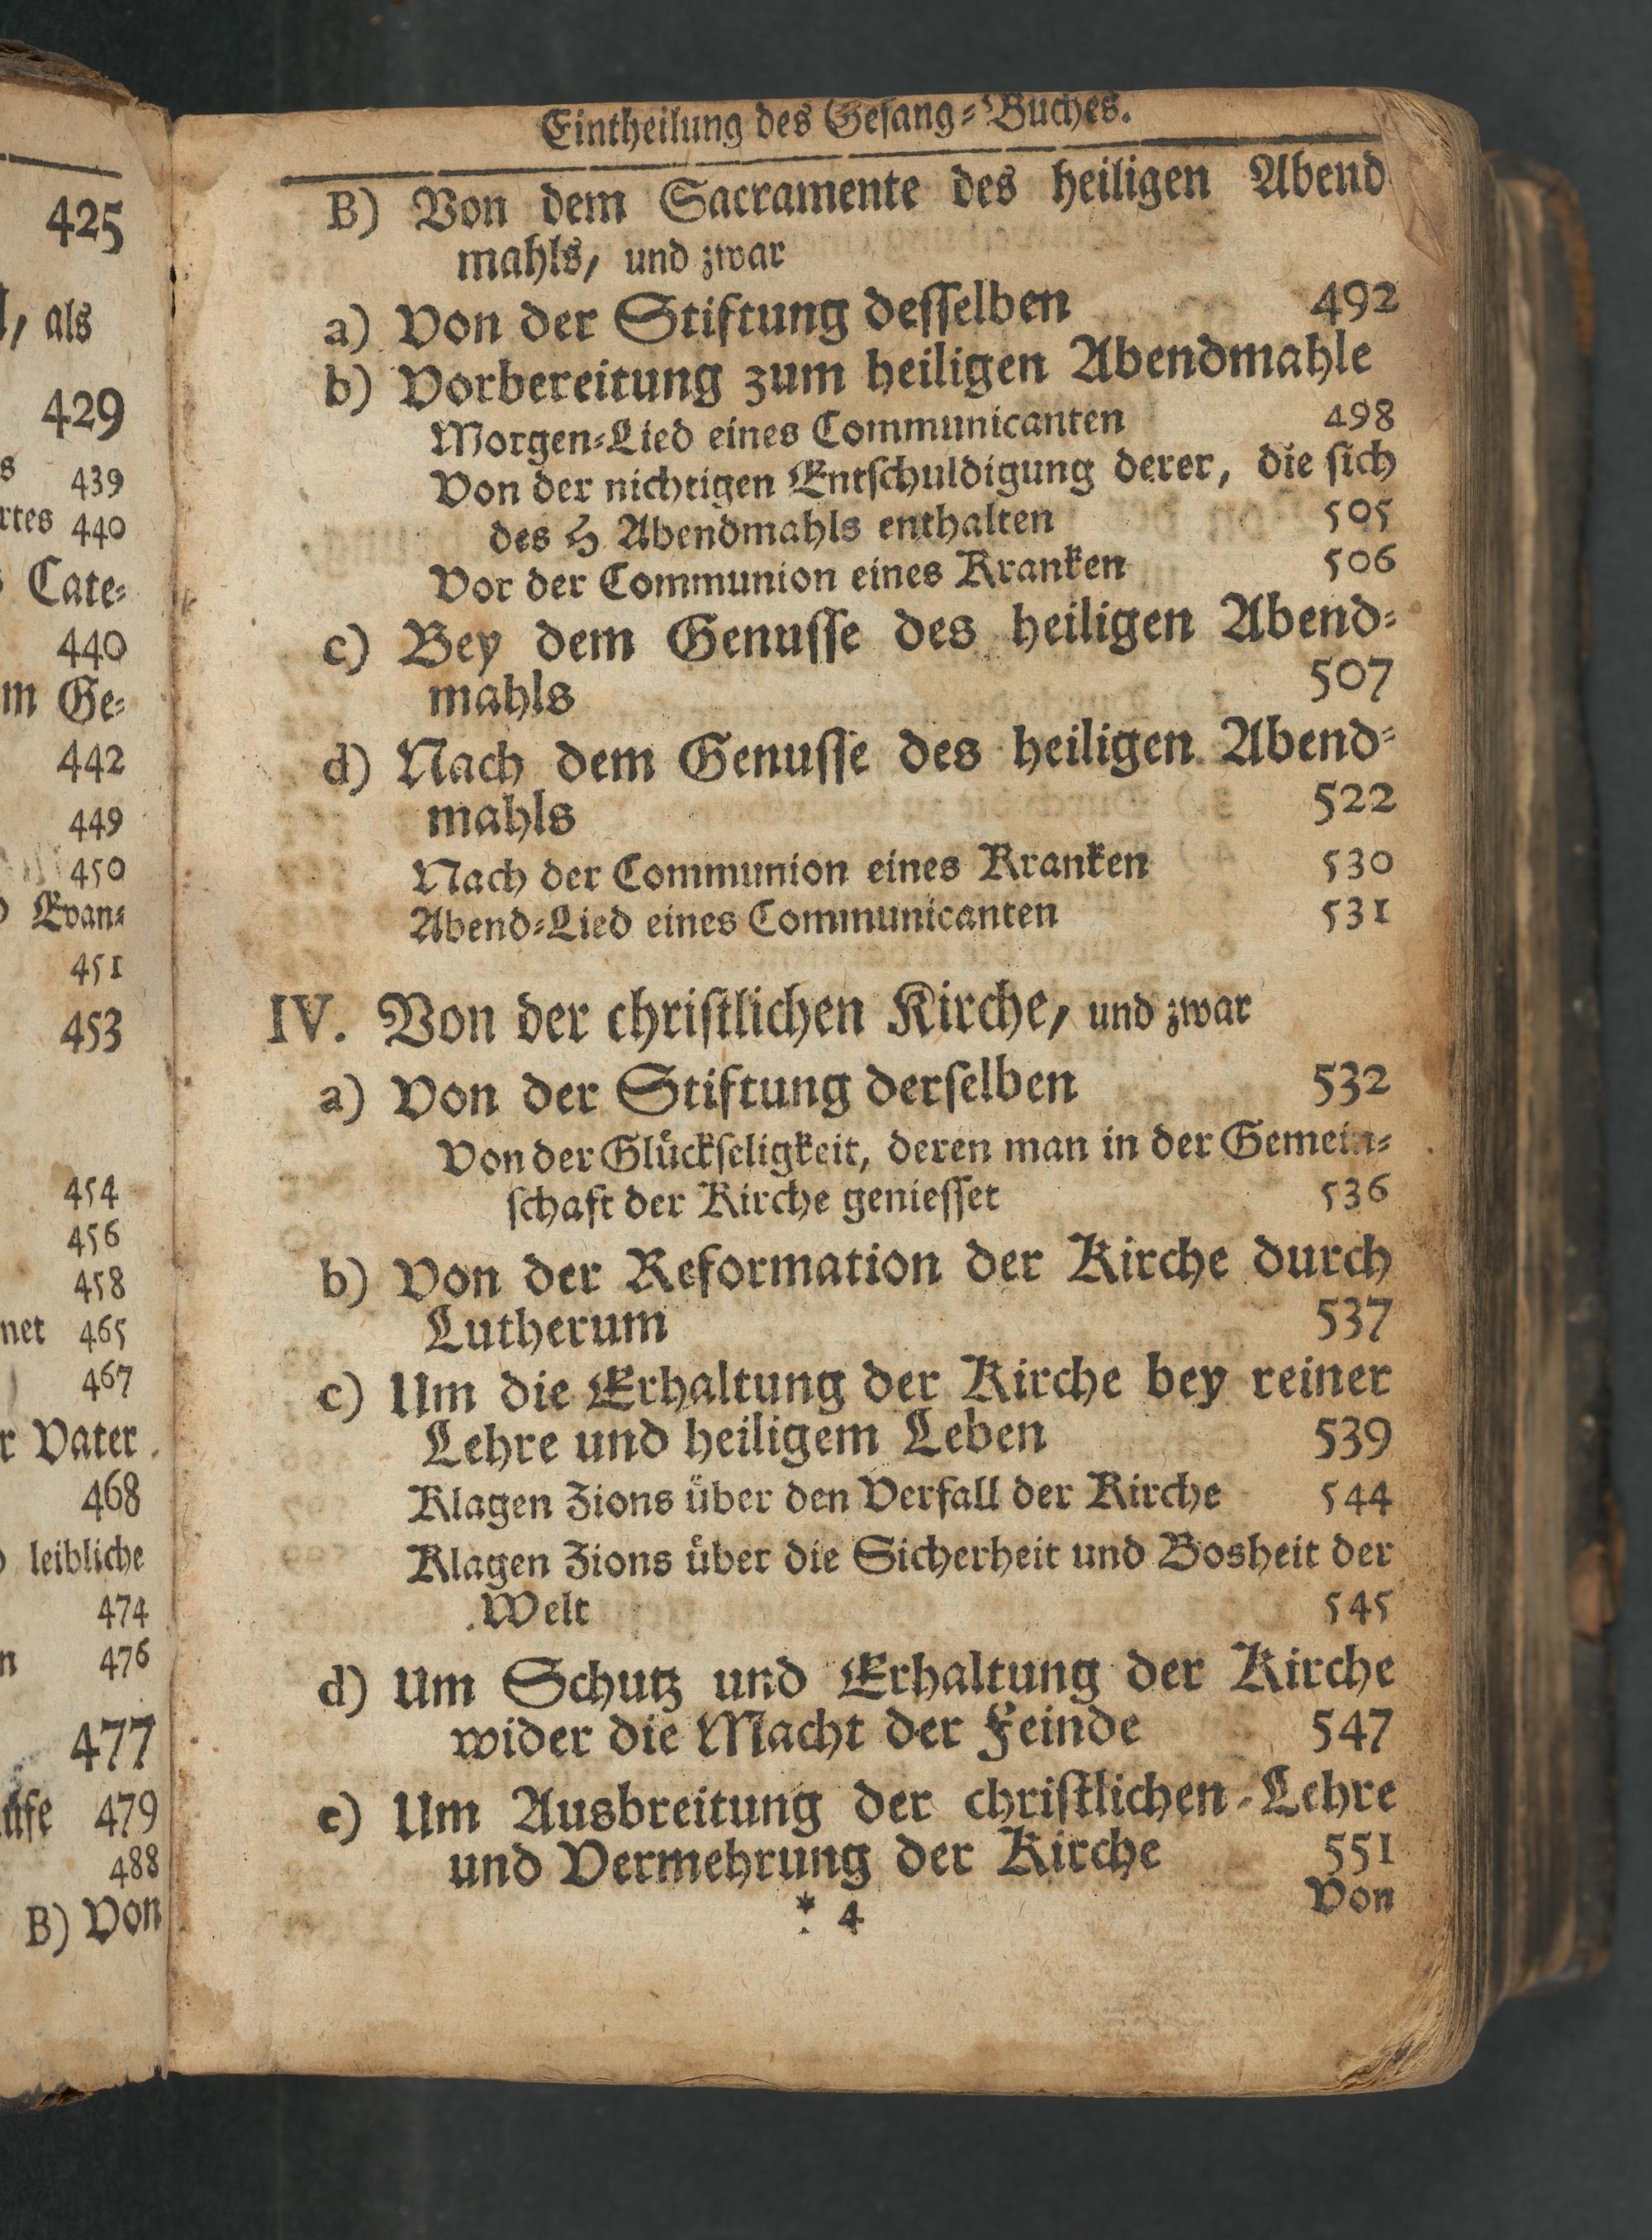 425
, als
429
s 439
rtes 440
Cate⸗
440
m Ge⸗
442
449
450
Evan⸗
451
453
454
456
458
net 465
467
r Vater
468
leibliche
474
n 476
477
479
488
B) Von
Eintheilung des Gesang⸗Buches.
B) Von dem Sacramente des heiligen Abend
mahls, und zwar
a) Von der Stiftung desselben 492
b) Vorbereitung zum heiligen Abendmahle
Morgen⸗Lied eines Communicanten 498
Von der nichtigen Entschuldigung derer, die sich
des H Abendmahls enthalten 505
Vor der Communion eines Kranken 506
c) Bey dem Genusse des heiligen Abend⸗
mahls 507
d) Nach dem Genusse des heiligen Abend⸗
mahls 522
Nach der Communion eines Kranken 530
Abend⸗Lied eines Communicanten 531
IV. Von der christlichen Kirche, und zwar
a) Von der Stiftung derselben 532
Von der Glückseligkeit, deren man in der Gemein⸗
schaft der Kirche geniesset 536
b) Von der Reformation der Kirche durch
Lutherum 537
c) Um die Erhaltung der Kirche bey reiner
Lehre und heiligem Leben 539
Klagen Zions über den Verfall der Kirche 544
Klagen Zions über die Sicherheit und Bosheit der
Welt 545
d) Um Schutz und Erhaltung der Kirche
wider die Macht der Feinde 547
e) Um Ausbreitung der christlichen Lehre
und Vermehrung der Kirche 551
* 4 Von